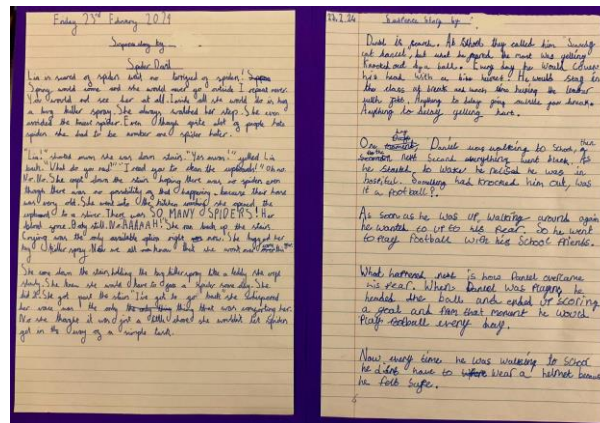 Friday 23rd February 2024
Suspense story by
Spider Devil
Lia is scared of spiders wait no terrified of spiders!
Spring would come and she would never go outside I repeat never.
You would not see her at all. Inside all she would do is hug
a bug killer spray. She always watched her step. She even
avoided the tiniest spider. Even though quite alot of people hate
spiders she had to be number one spider hater.
"Lia!" shouted mum she was down stairs. "Yes mum!" yelled Lia
back. "What do you need" "I need you to clean the cupboards!" Oh no.
No. No. She crept down the stairs hoping there was no spiders even
though there was no possibility of that happening because their house
was very old. She went into the kitchen she opened the
cupboard to a stare. There was SO MANY SPIDERS! Her
blood gone. Body still. No AAAAAH! She ran back up the stairs.
Crying was the only available option right now. She hugged her
bug killer spray. Now we all know that she wont
She came down the stairs, holding the bug killer spray like a teddy she crept
slowly. She knew she would have to face a spider some day. She
did it. She got past the stairs "I've got to go back" she whispered
her voice was the only thing that was comforting her.
No she thought it was just a little she wouldn't let spiders
get in the way of a simple task.
23.2.24 Suspense Story by
Daniel is scared. At School they called him
but what he feared the most was getting
knocked out by a ball. Every day he would cover
his head with a bike helmet. He would stay in
the class at break and lunch time helping the teacher
with jobs. Anything to delay going outside for break.
Anything to delay getting hurt.
One Daniel was walking to School, then
next Second everything went black. As
he started to wake he realised he was in
hospital. Something had knocked him out, was
it a football?
As soon as he was up, walking around again
he wanted to up to his fear. So he went
to Play football with his School friends.
What happened next is how Daniel overcame
his fear. When Daniel was Playing he
headed the ball and ended up scoring
a goal and from that moment he would
Play football every day.
Now every time he was walking to School
he didnt have to wear a helmet because
he felt Safe.